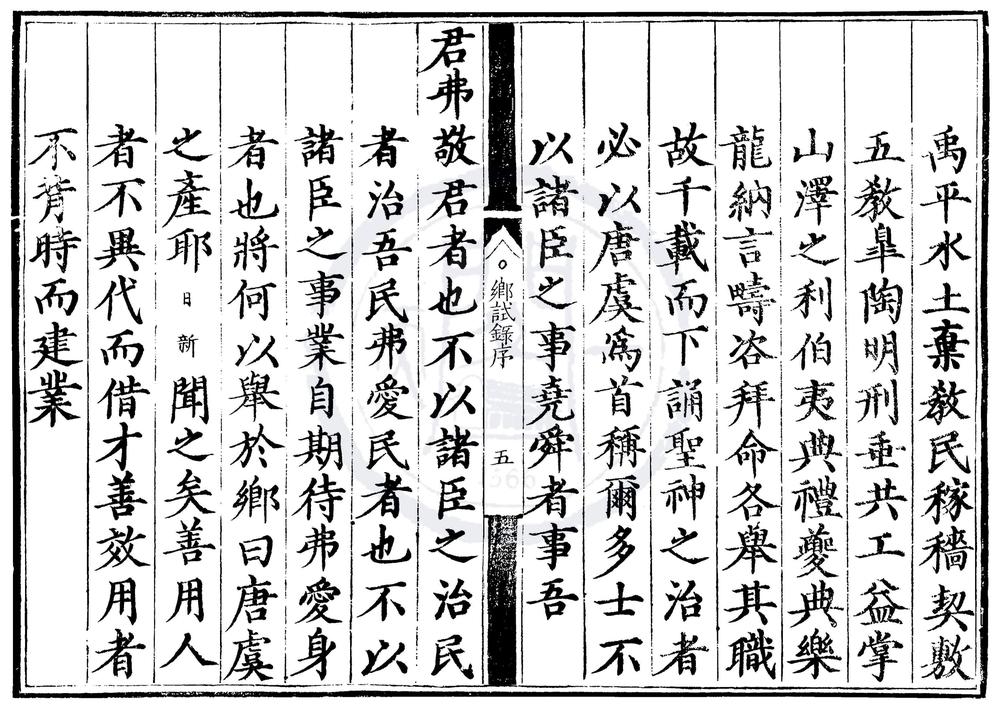 禹平水土棄敎民稼穡契敷
五敎皐陶明刑垂共工益掌
山澤之利伯夷典禮夔典樂
龍納言疇咨拜命各舉其職
故千載而下誦聖神之治者
必以唐虞爲首稱爾多士不
以諸臣之事堯舜者事吾
鄉試錄序
五
君弗敬君者也不以諸臣之治民
者治吾民弗愛民者也不以
諸臣之事業自期待弗愛身
者也將何以舉於鄉曰唐虞
之產耶日新聞之矣善用人
者不異代而借才善效用者
不背時而建業